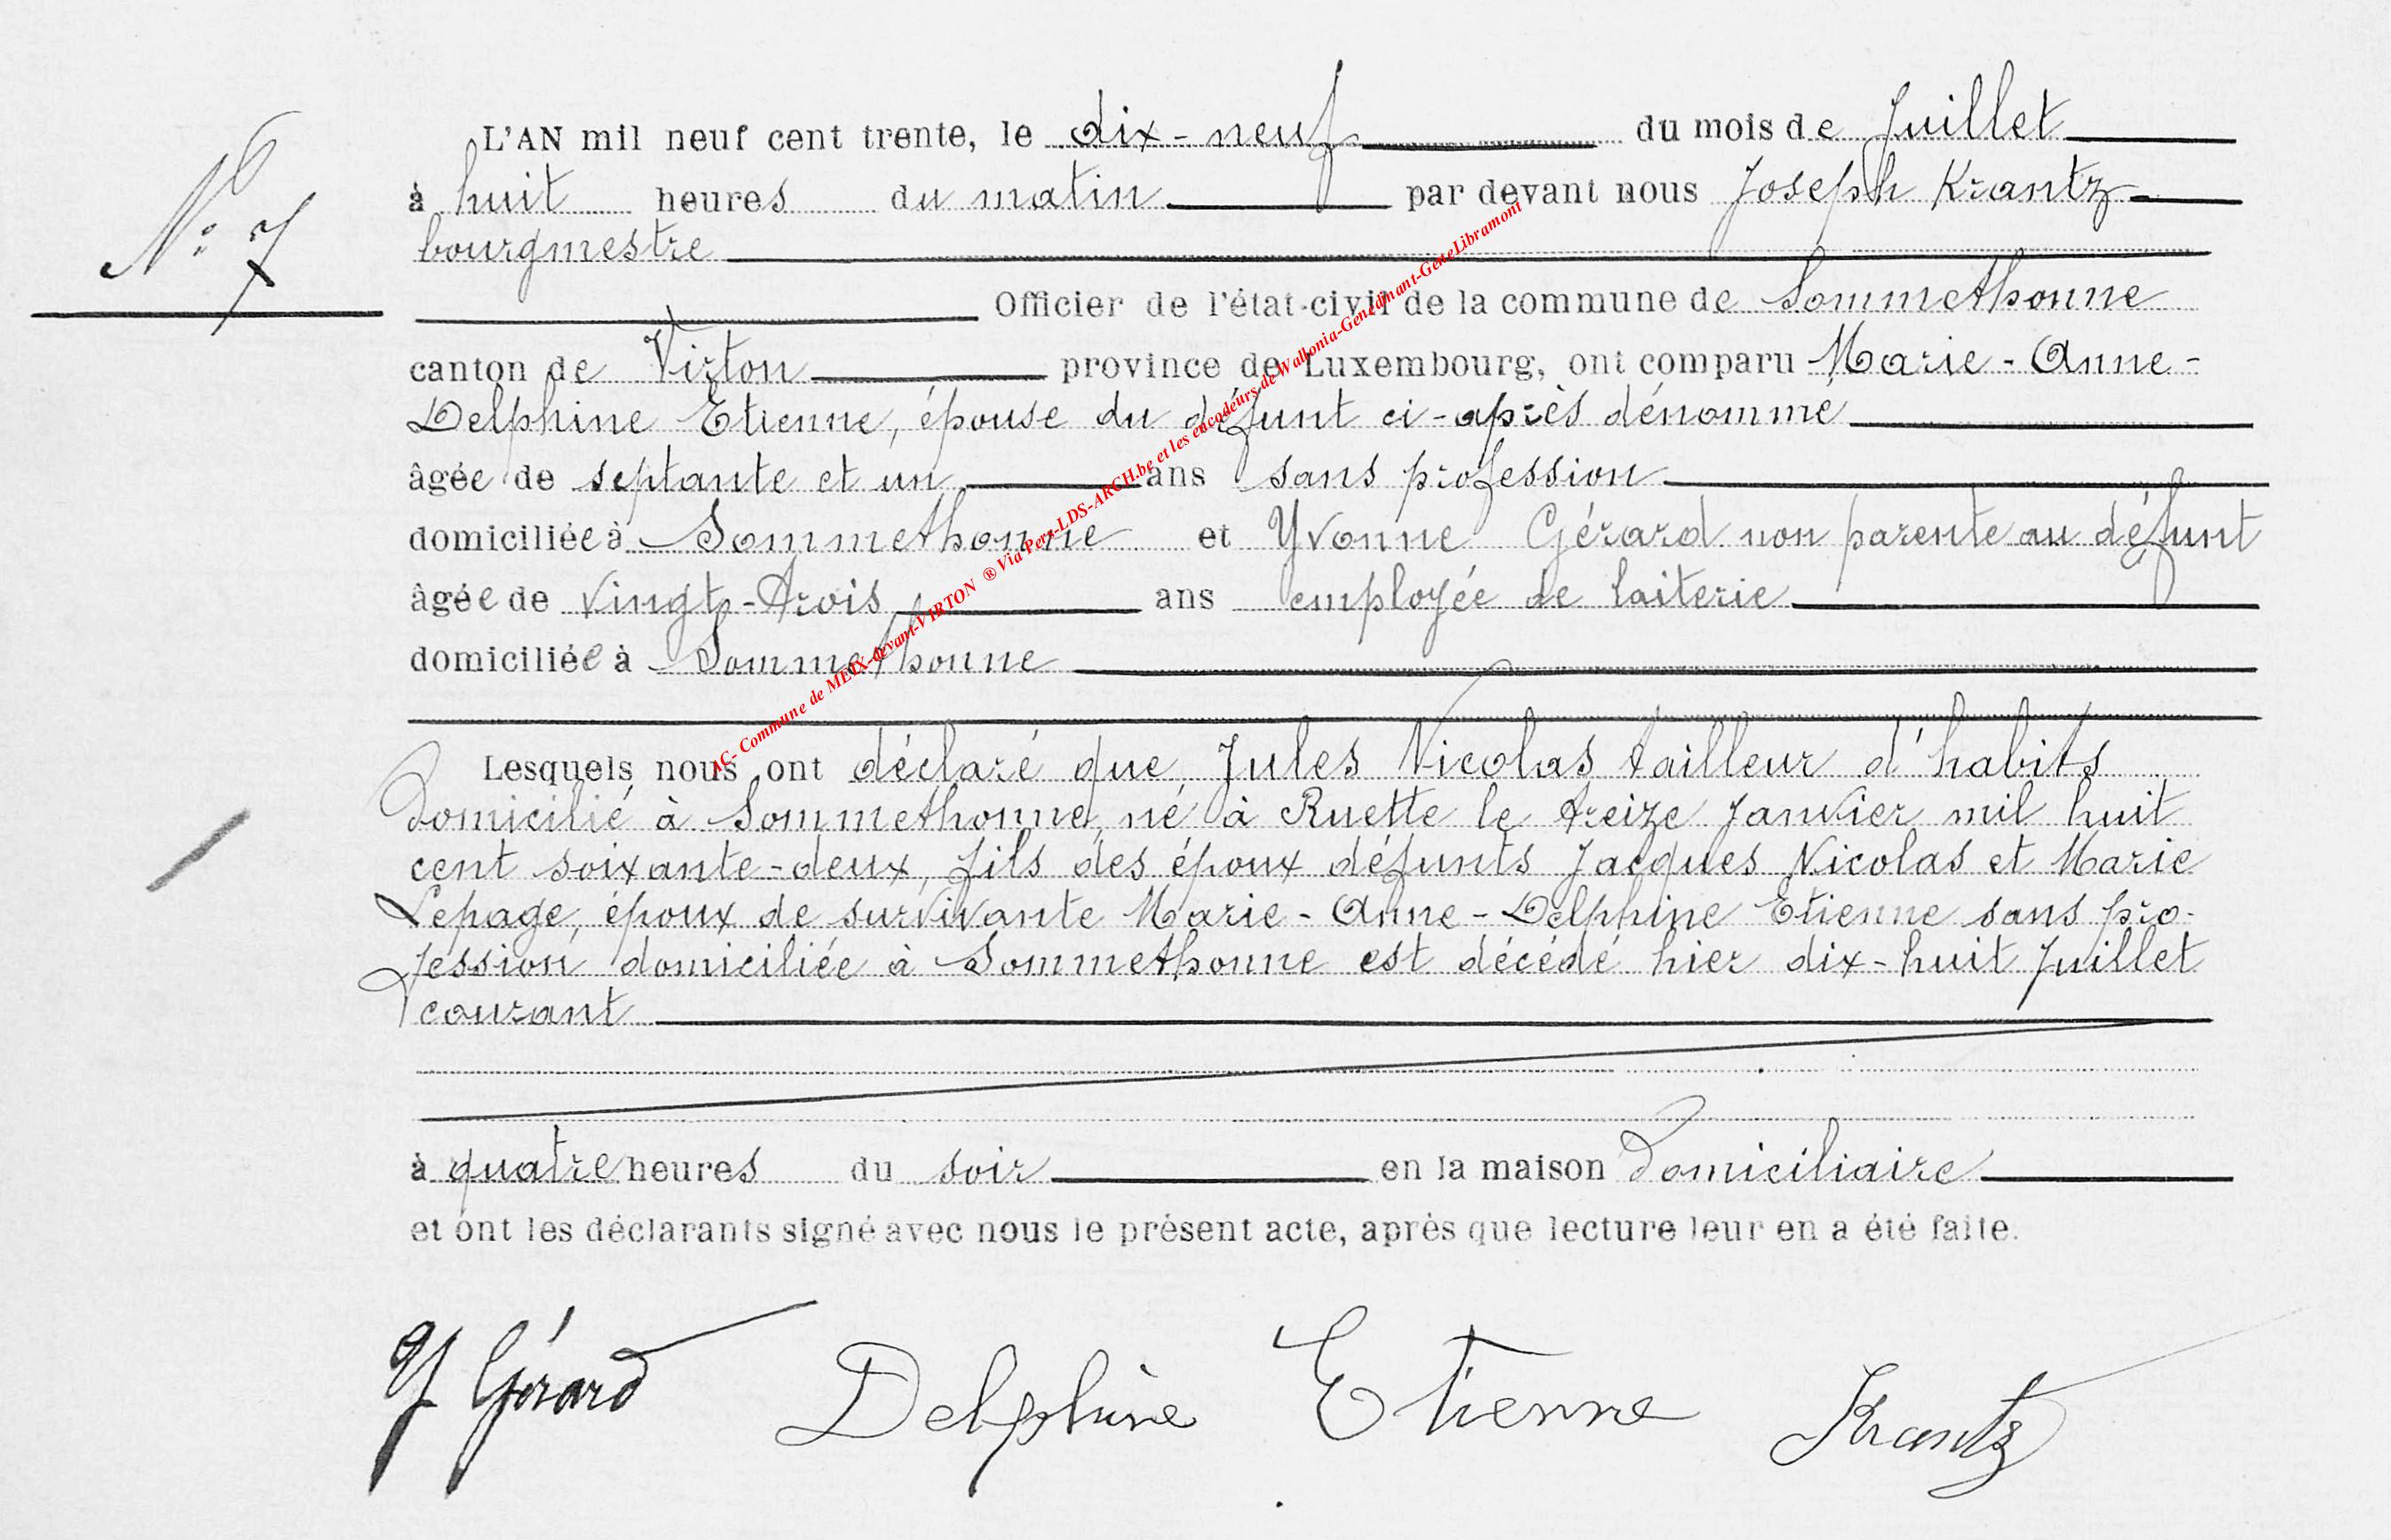 L'AN mil neuf cent trente, le dix-neuf du mois de Juillet
N° 7
à huit heures du matin par devant nous Joseph Krantz
bourgmestre
Officier de l'état-civil de la commune de Sommethonne
canton de Virton province de Luxembourg, ont comparu Marie-Anne-
Delphine Etienne, épouse du défunt ci-après dénommé
âgée de septante et un ans sans profession
domiciliée à Sommethonne et Yvonne Gérard non parente au défunt
âgée de vingt-trois ans employée de laiterie
domiciliée à Sommethonne
Lesquels nous ont déclaré que Jules Nicolas tailleur d'habits
domicilié à Sommethonne, né à Ruette le treize Janvier mil huit
cent soixante-deux, fils des époux défunts Jacques Nicolas et Marie
Lepage, époux de survivante Marie-Anne-Delphine Etienne sans pro-
fession domiciliée à Sommethonne est décédé hier dix-huit Juillet
courant
à quatre heures du soir en la maison domiciliaire
et ont les déclarants signé avec nous le présent acte, après que lecture leur en a été faite.
Y Gérard Delphine Etienne Krantz
AC- Commune de MEIX-devant-VIRTON ® Via Pers-LDS-ARCH.be et les encodeurs de Wallonia-Genedinant-GeneLibramont